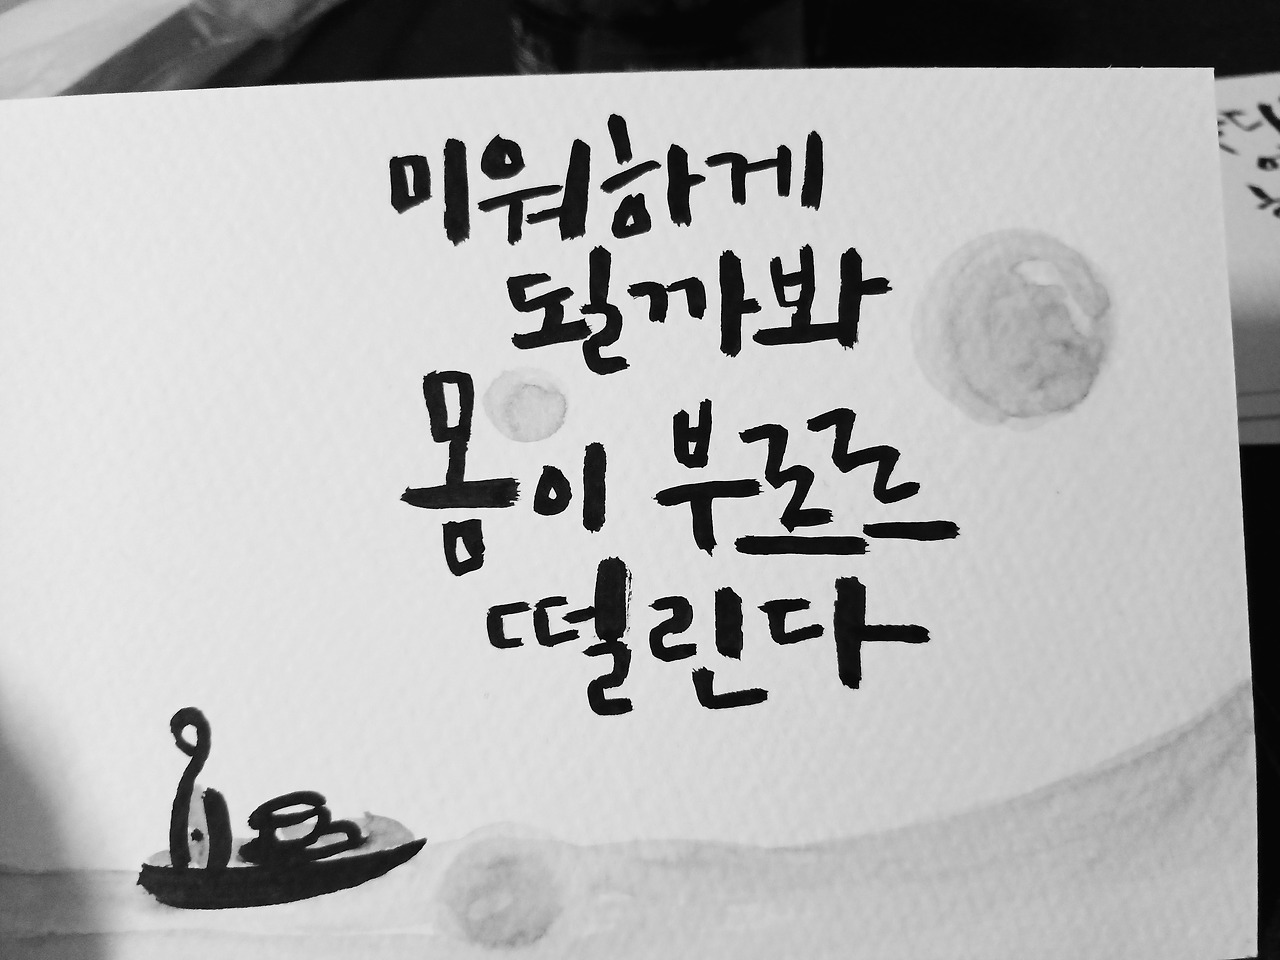 미워하게
될까봐
몸이 부르르
떨린다